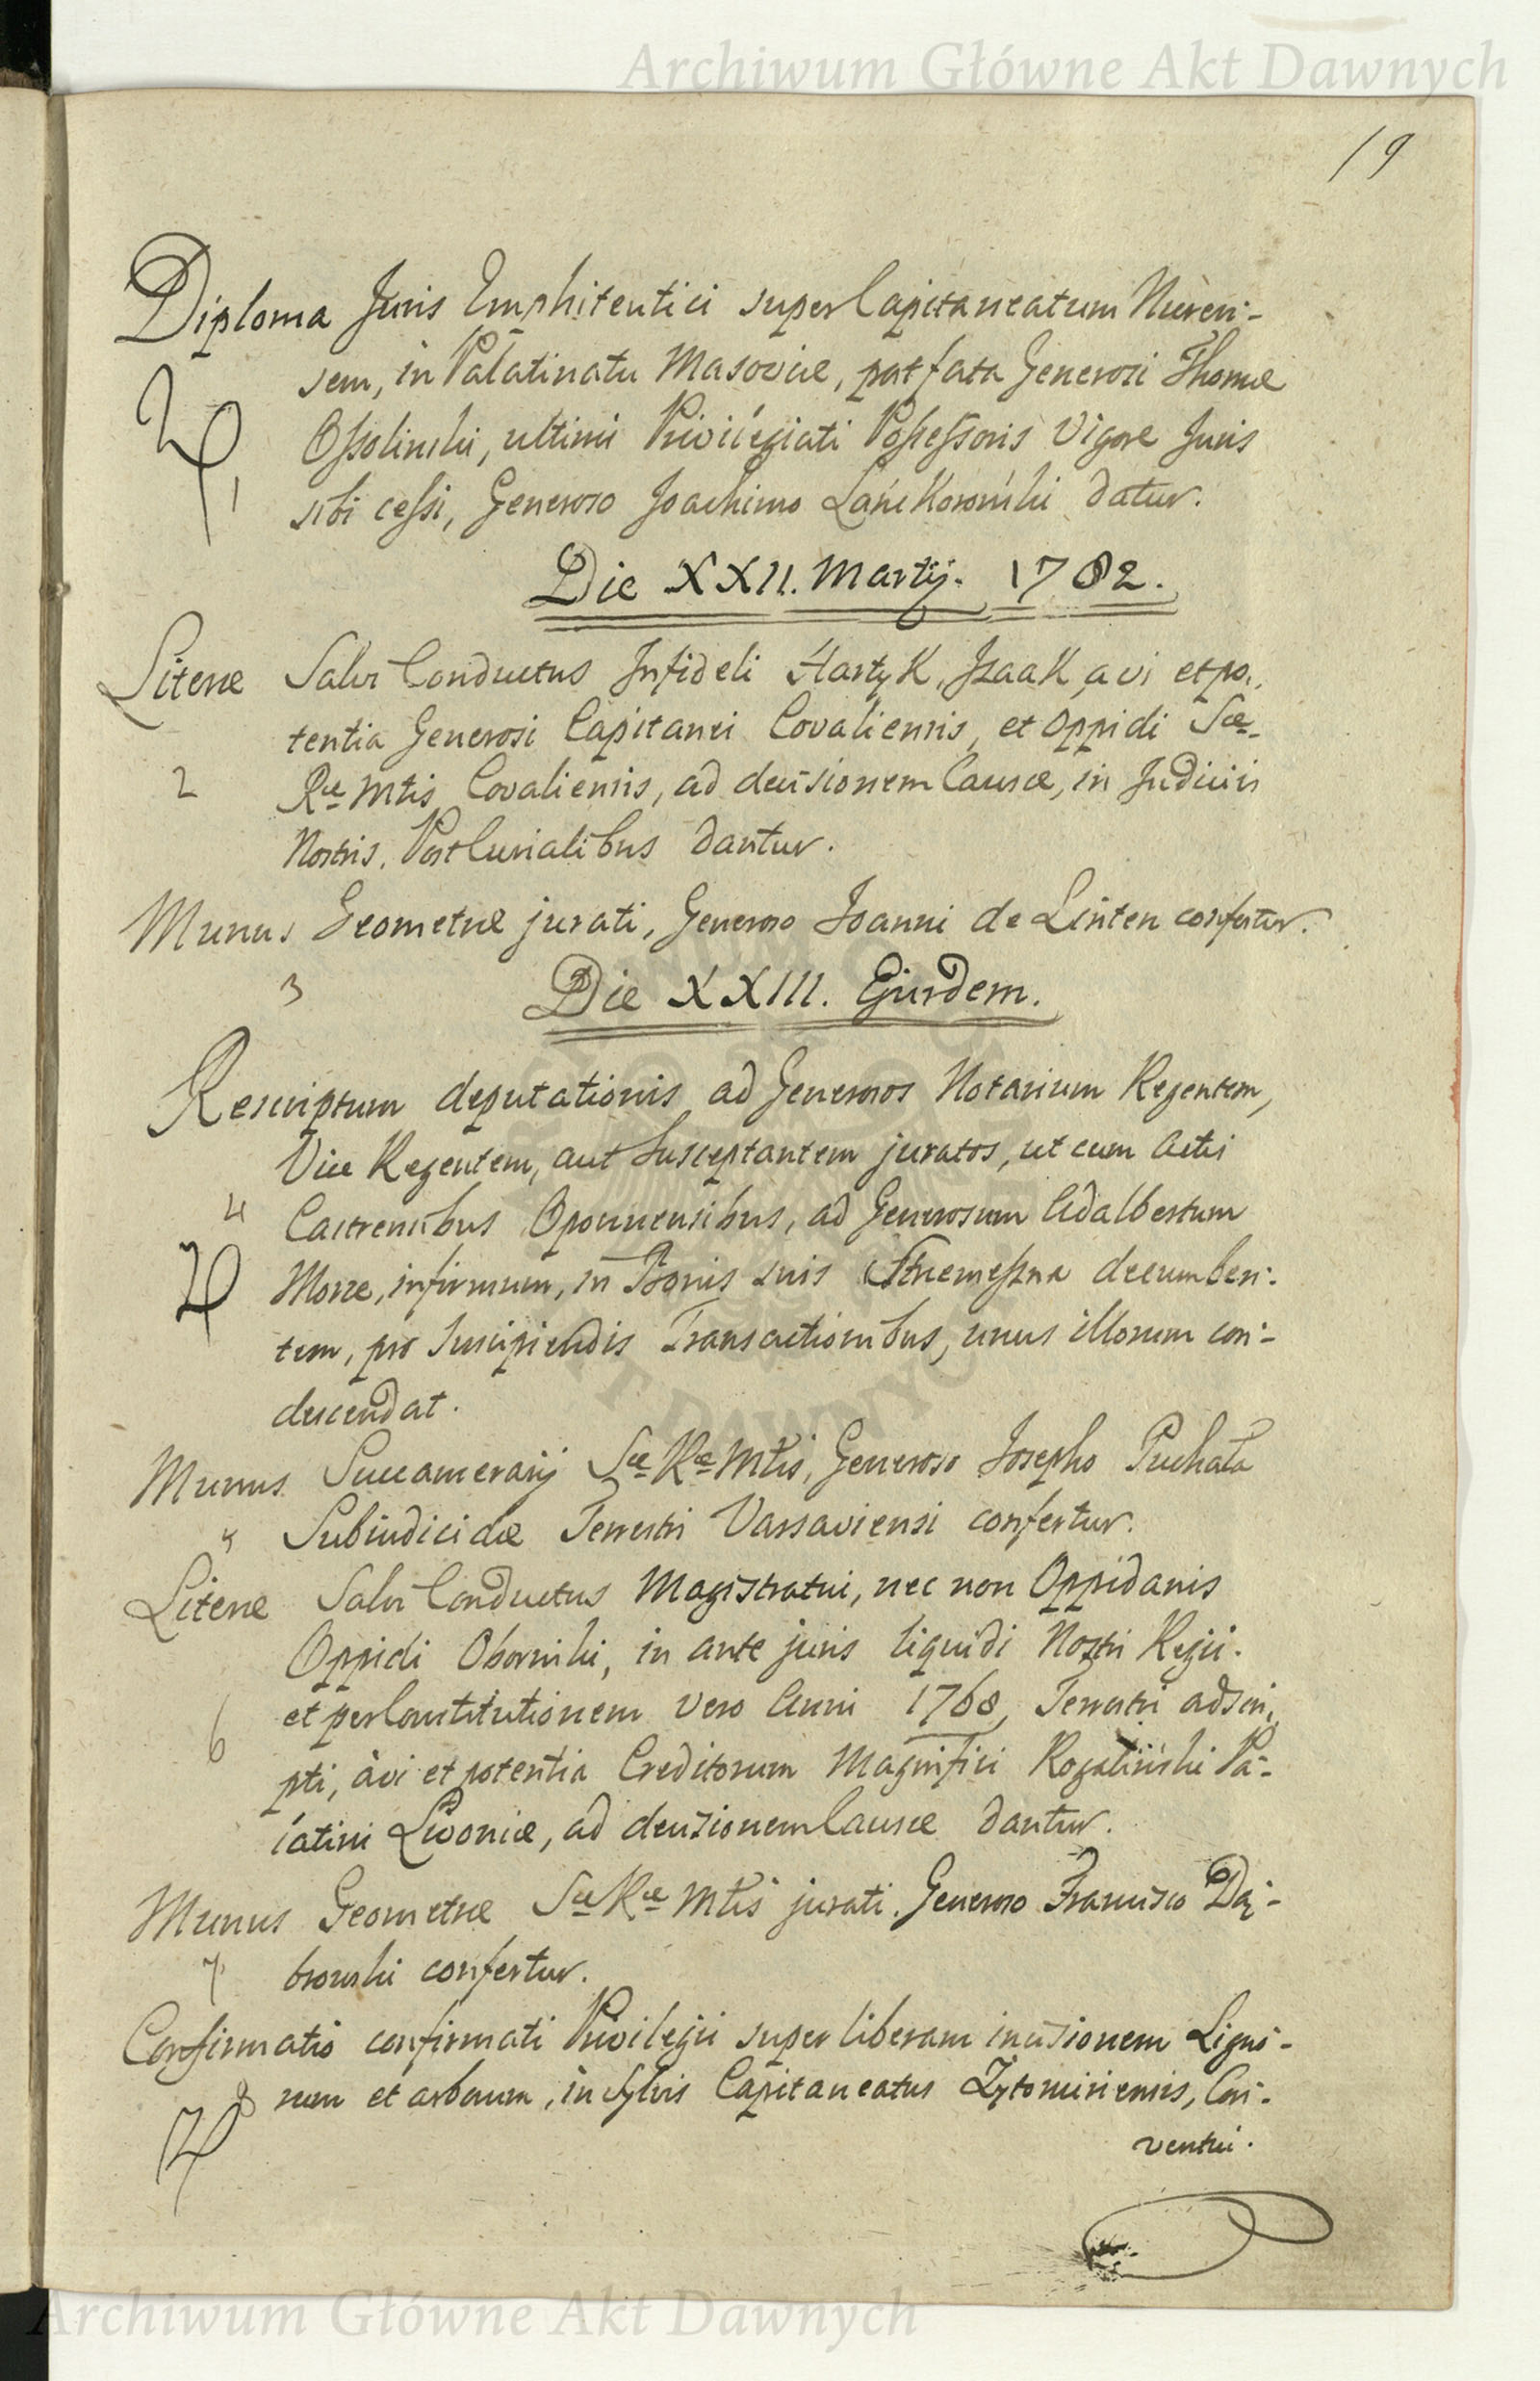 Archiwum Główne Akt Dawnych
19
Diploma Juris Emphiteutici super Capitaneatum Nuren:-
sem, in Palatinatu Masoviæ, post fata Generosi Thomæ
Ossolinski, ultimi Privilegiati Possessoris Vigore Juris
1
sibi cessi, Generoso Joachimo Lańckoroński datur.
Die XXII. Martij. 1782.
Literæ Salvi Conductus Infideli Hartyk, Jzaak, a vi et po,,
tentia Generosi Capitanei Covaliensis, et Oppidi Sæ-
2 Ræ Mtis Covaliensis, ad decisionem Causæ, in Judiciis
Nostris. Post Curialibus dantur.
Munus Geometræ jurati, Generoso Joanni de Linten confertur.
3 Die XXIII. Ejusdem.
Rescriptum deputationis ad Generosos Notarium Regentem,
Vice Regentem, aut Susceptantem juratos, ut cum Actis
4 Castrensibus Opocnensibus, ad Generosum Adalbertum
Morze, infirmum, in Bonis suis decumben:-
tem, pro Suscipiendis Transactionibus, unus illorum con:-
descendat.
Munus Succamerarij Sæ Ræ Mtis, Generoso Josepho Puchała
5 Subiudicidæ Terrestri Varsaviensi confertur.
Literæ Salvi Conductus Magistratui, nec non Oppidanis
Oppidi Oborniki, in ante juris liquidi Nostri Regii.
et per Constitutionem vero Anni 1768, Terrestri adscri,,
6
pti, à vi et potentia Creditorum Magnifici Rogaliński Pa-
latini Livoniæ, ad decisionem Causæ dantur.
Munus Geometræ Sæ Ræ Mtis jurati. Generoso Francisco Dą:-
7 browski confertur.
Confirmatio confirmati Privilegii super liberam incisionem Ligno-
8 rum et arborum, in sylvis Capitaneatus Zytomiriensis, Con:-
ventui.
Archiwum Główne Akt Dawnych